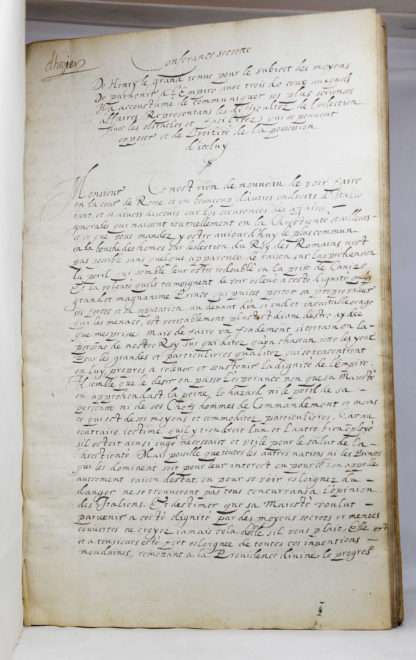 dhozier
Conference secrette
De Henry le grand tenue pour le subiect des moyens
De parvenir a l'Empire avec trois de ceux ausquels
Il a accoustumé de communiquer ses plus serieuses
affaires Representans les difficultez de l'eslection
avec les obstacles et facilitez qui se peuvent
opposer et de l'utilité de la possession
d'iceluy
Monsieur Ce n'est rien de nouveau de voir faire
en la cour de Rome et en beaucoup d'autres endroits d'Italie
tant et si divers discours sur les occurences des affaires
generales qui naissent iournellement en la Chrestienté et ailleurs
et ce que vous mandez y estre auiourd'huy le plus commun
en la bouche des hommes sur l'eslection du Roy des Romains n'est
pas possible sans quelque apparence de raison sur l'apprehension
du peril qui semble leur estre redoublé en la prise de Canize
Et la volonté qu'ils tesmoignent de voir eslever a ceste dignité quelq
grand et magnanime Prince qui puisse porter sa
ses forces et sa reputation au devant d'un si cruel et inevitable orage
qui les menace, est veritablement plustost digne destre aydee
que mesprisee. Mais de faire un fondement si certain en la
personne de nostre Roy sur qui dites quun chacun iette les yeux
pour les grandes et particulieres qualitez qui se rencontrent
en luy, propres a relever et soustenir la dignité de l'Empire,
Il semble que le desir en passe l'esperance non que sa Maiesté
en apprehendast la peine, le hazard ni le peril de sa
personne ni de ses Chefs hommes de Commandement et moins
ce qui est de ses moyens et commoditez particulieres, Car au
contraire i'estime quil y tiendroit l'un et l'autre bien employé
sil estoit ainsi iugé necessaire et utile pour le salut de la
chrestienté. Mais possible que toutes les autres nations ni les Princes
qui les dominent soit pour leur interest ou pour ce l'on appelle
autrement raison destat, ou pour se voir esloignez du
danger ne se trouveront pas tous concurrans a l'opinion
des Italiens. Et destimer que sa Maiesté voulut
parvenir a ceste dignité par des moyens secrets et menees
couvertes ne croyez iamais cela delle sil vous plaist, Elle est
et a tousiours esté trop esloignee de toutes ces inventions
mondaines, remettant a la Providence divine le progres